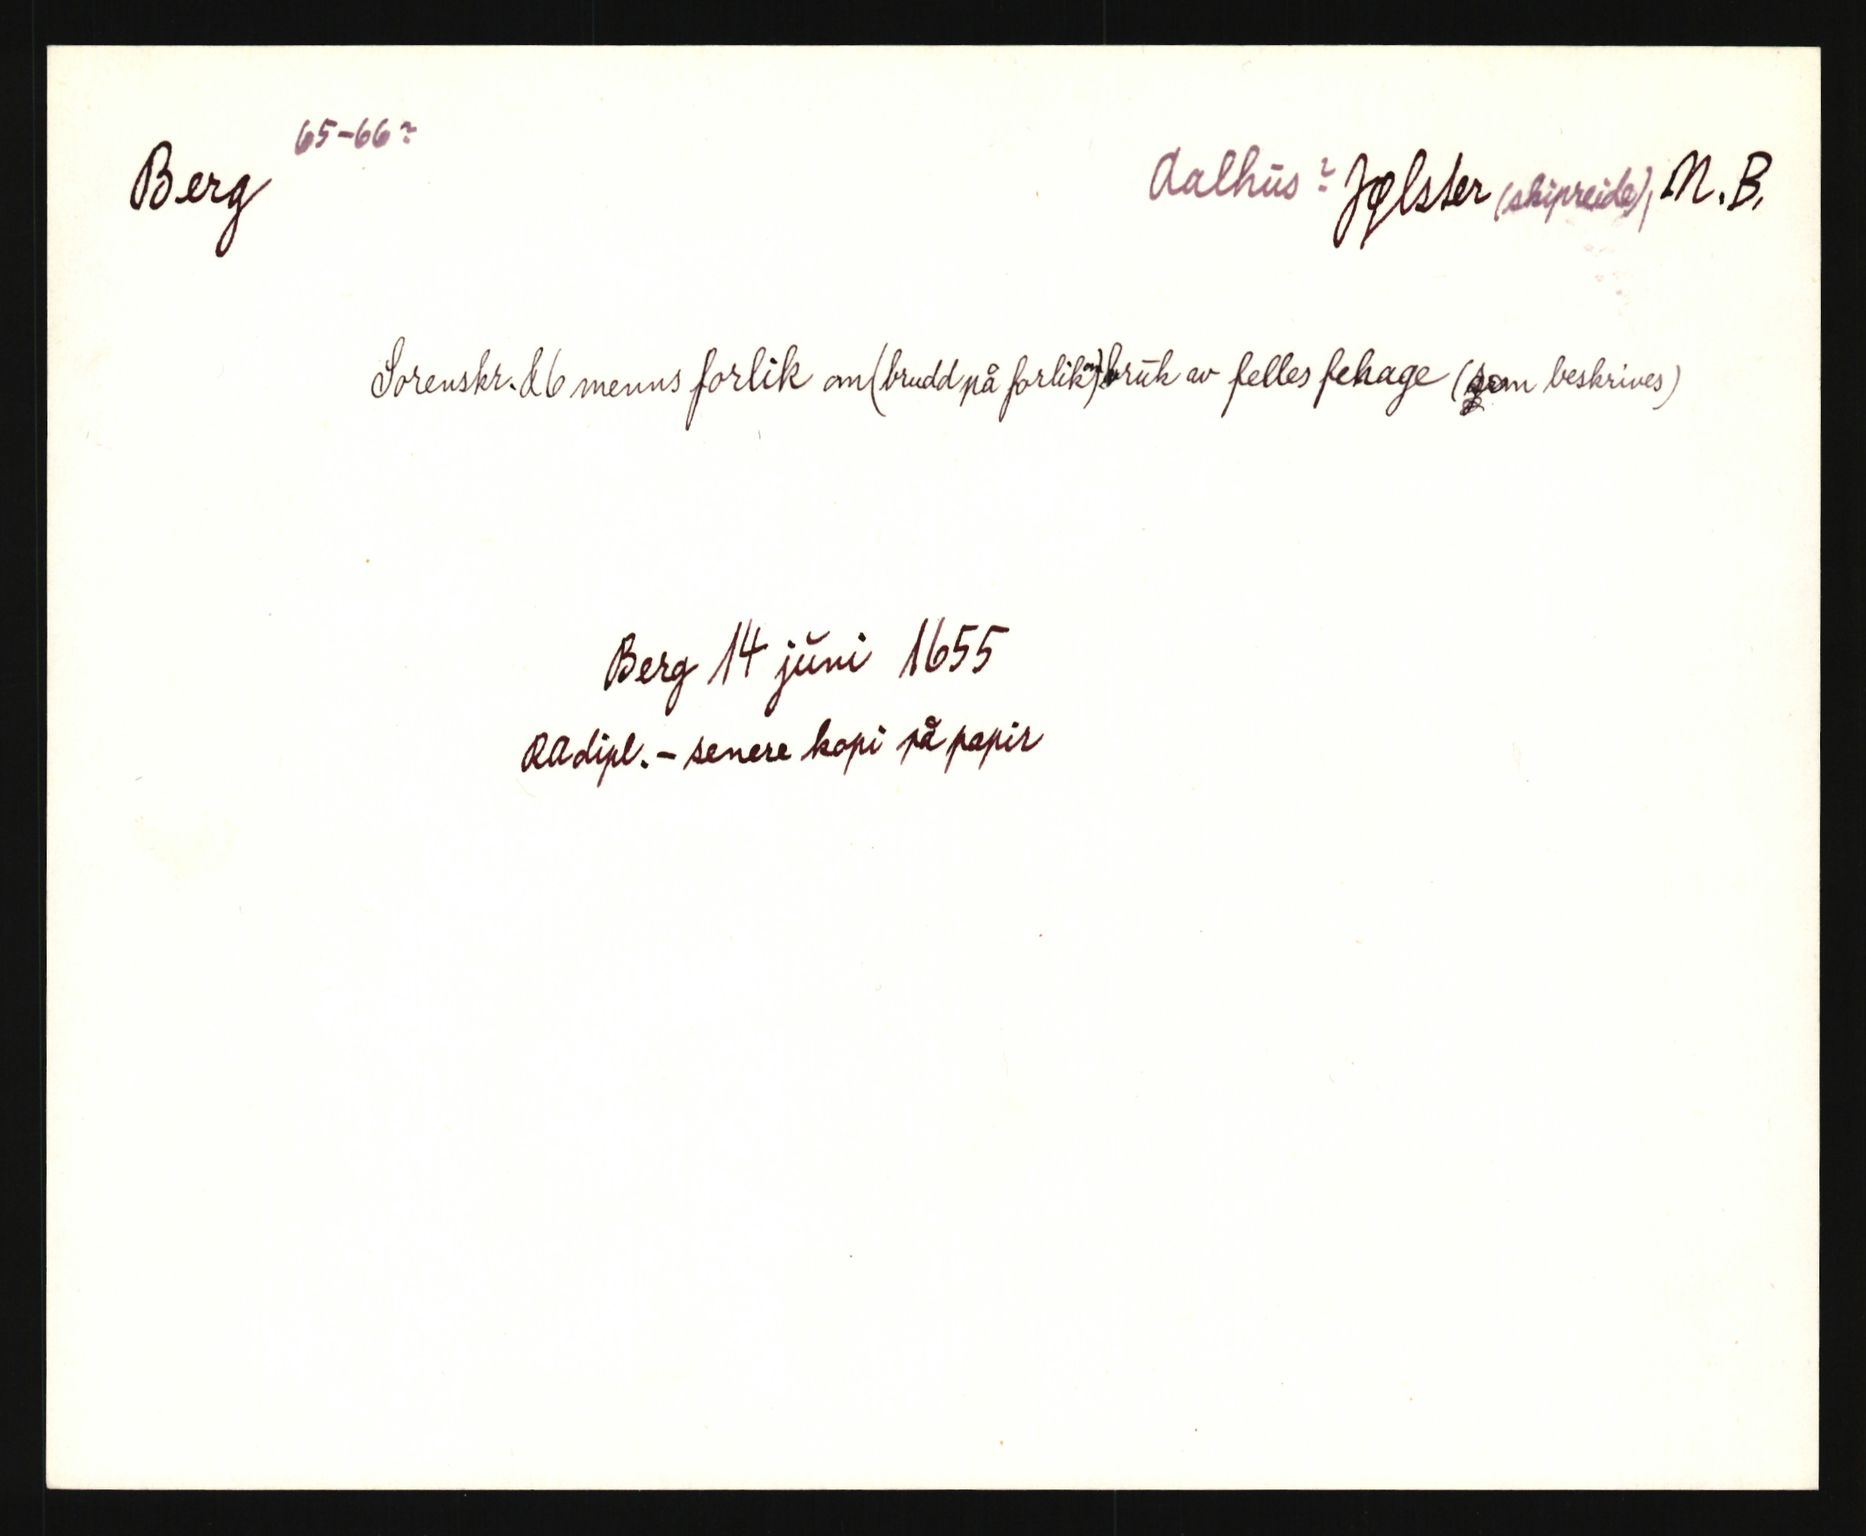 Berg 65-66? Aalhus? Jølster (skipreide), N.B.
Sorenskr. & 6 menns forlik om (brudd på forlik om) bruk av felles fehage (som beskrives)
Berg 14 juni 1655
RAdipl. – senere kopi på papir